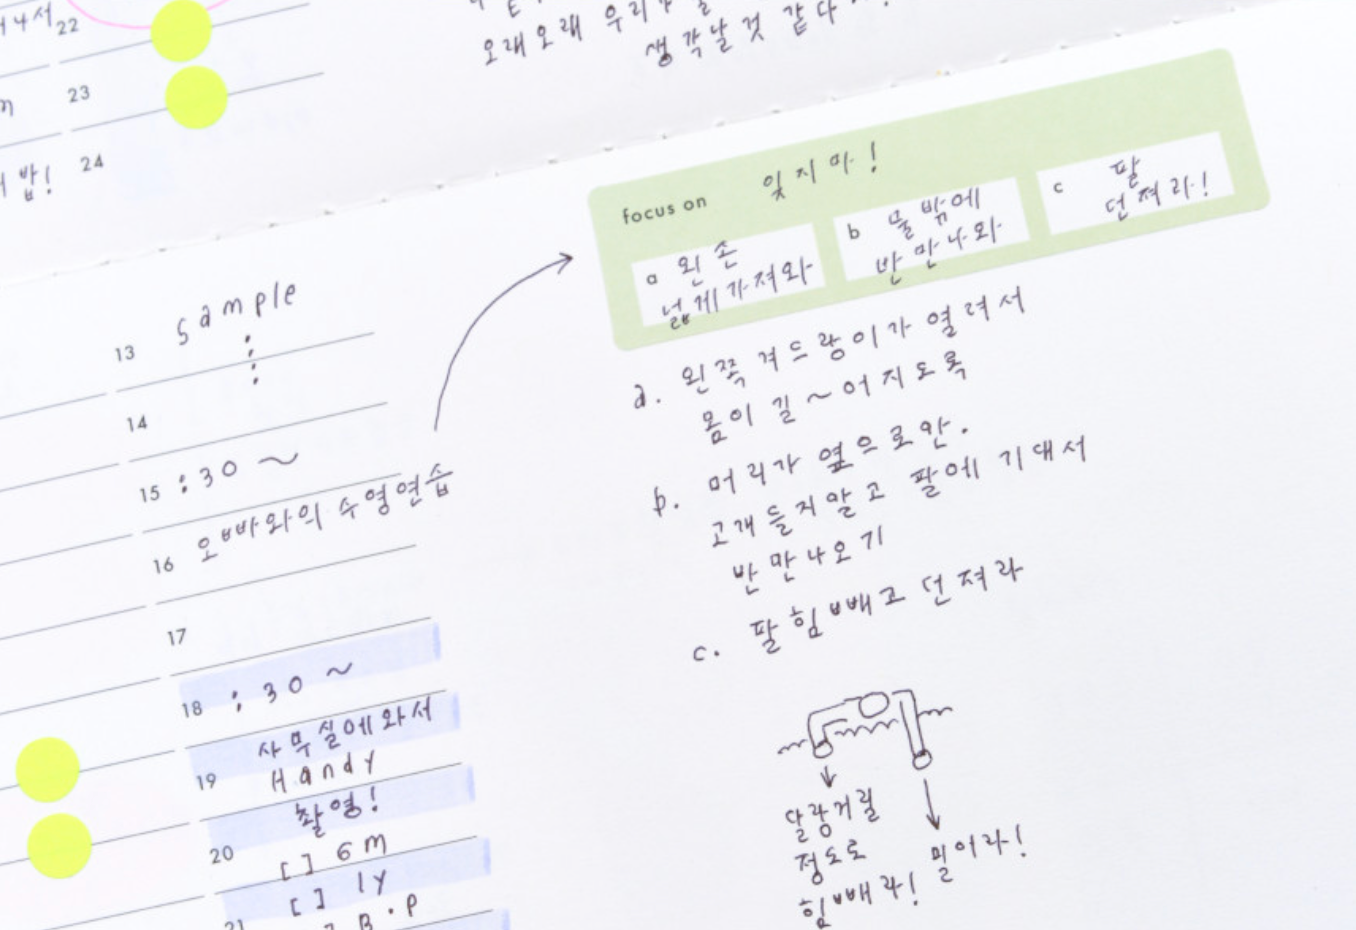 22
23
24
밥!
오래오래 우리
생각날것 같다
focus on 잊지마!
a 왼손
넓게가져와
b 물밖에
반만나와
c 팔
던져라!
13 sample
:
:
14
15 :30 ~
16 오빠와의 수영연습
17
18 :30 ~
사무실에와서
19 Handy
촬영!
20
[ ] 6m
[ ] ly
21
B.P
a. 왼쪽겨드랑이가 열려서
몸이 길~어지도록
b. 머리가 옆으로만.
고개들지말고 팔에 기대서
반만나오기
c. 팔힘빼고 던져라
달랑거릴
정도로
힘빼라!
밀어라!